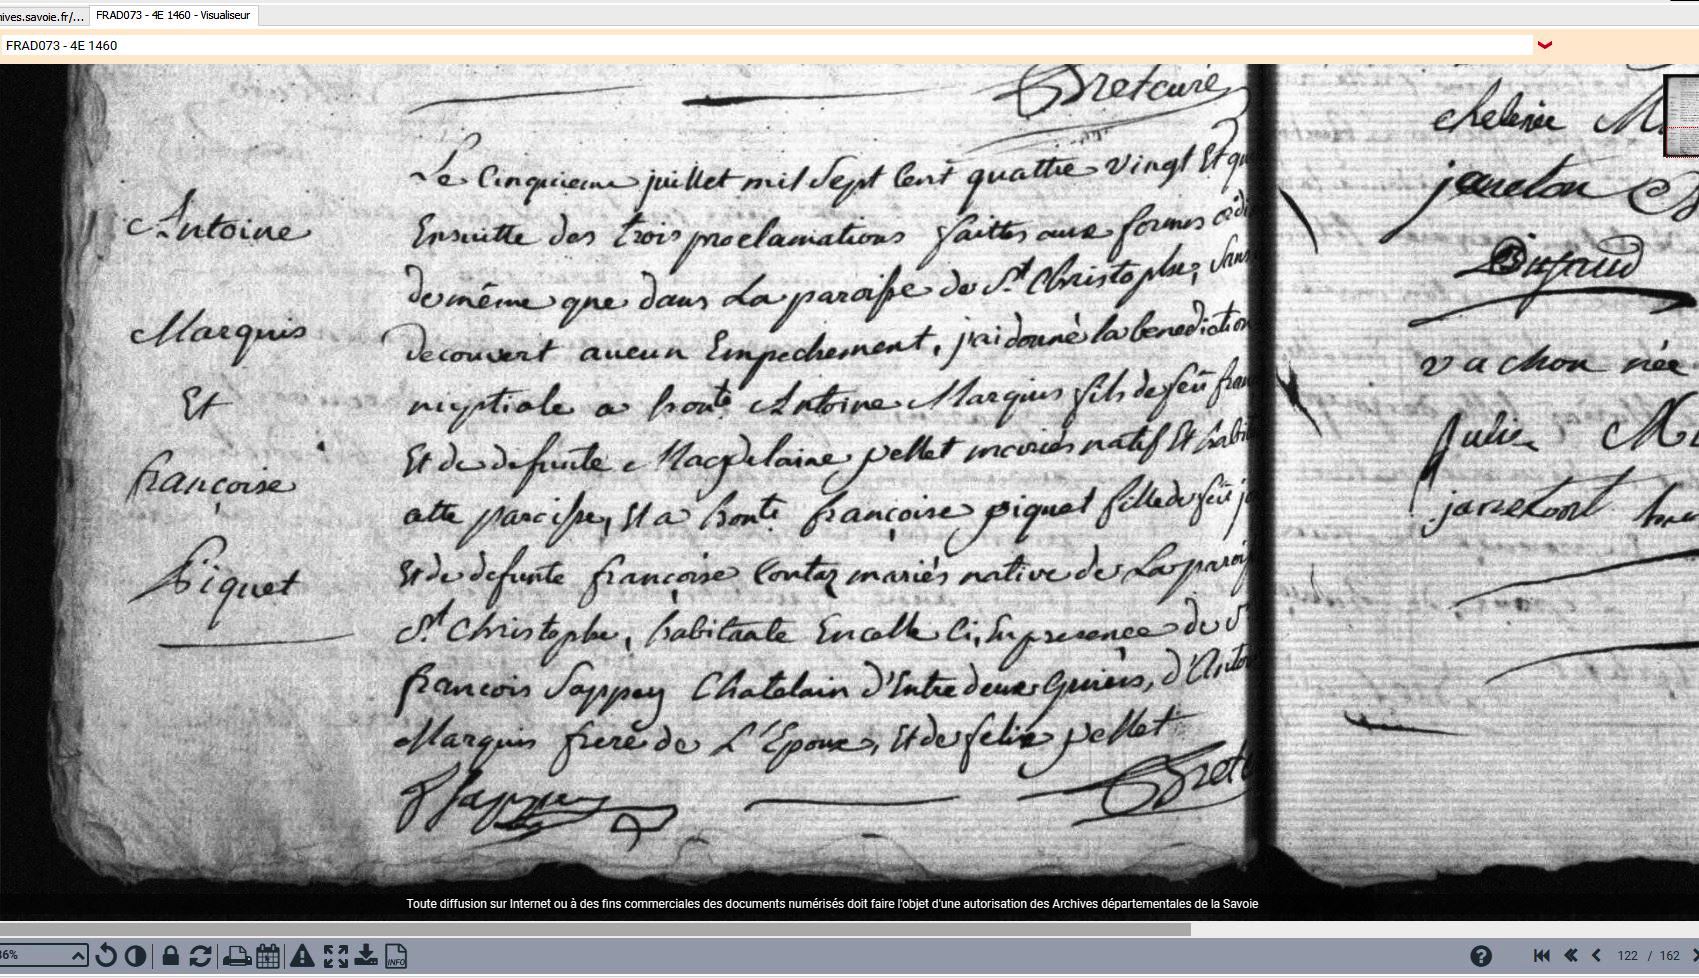 ives.savoie.fr/...
FRAD073 - 4E 1460 - Visualiseur
FRAD073 - 4E 1460
Bret curé
Antoine
Marquis
Et
françoise
Piquet
Le Cinquieme juillet mil Sept Cent quattre vingt Et qu
Ensuitte des trois proclamations faittes aux formes ordi
de même que dans La paroisse de St Christophe, Sans
decouvert aucun Empechement, j'ai donné la benediction
nuptiale a honte Antoine Marquis fils de feu fran
Et de defunte Magdelaine pellet mariés natif Et habit
cette paroisse, Et a honte françoise piquet fille de feu j
Et de defunte françoise Contaz mariés native de La parois
St Christophe, habitante En celle Ci, En presence de S
françois Sappey Chatelain d'Entre deux Guiers, d'Anto
Marquis frere de L'Epoux, Et de felix pellet
f Sappey
Bret c
chelerie M
janeton
Digaud
vachon née
Julie M
Toute diffusion sur Internet ou à des fins commerciales des documents numérisés doit faire l'objet d'une autorisation des Archives départementales de la Savoie
86%
INFO
122 / 162